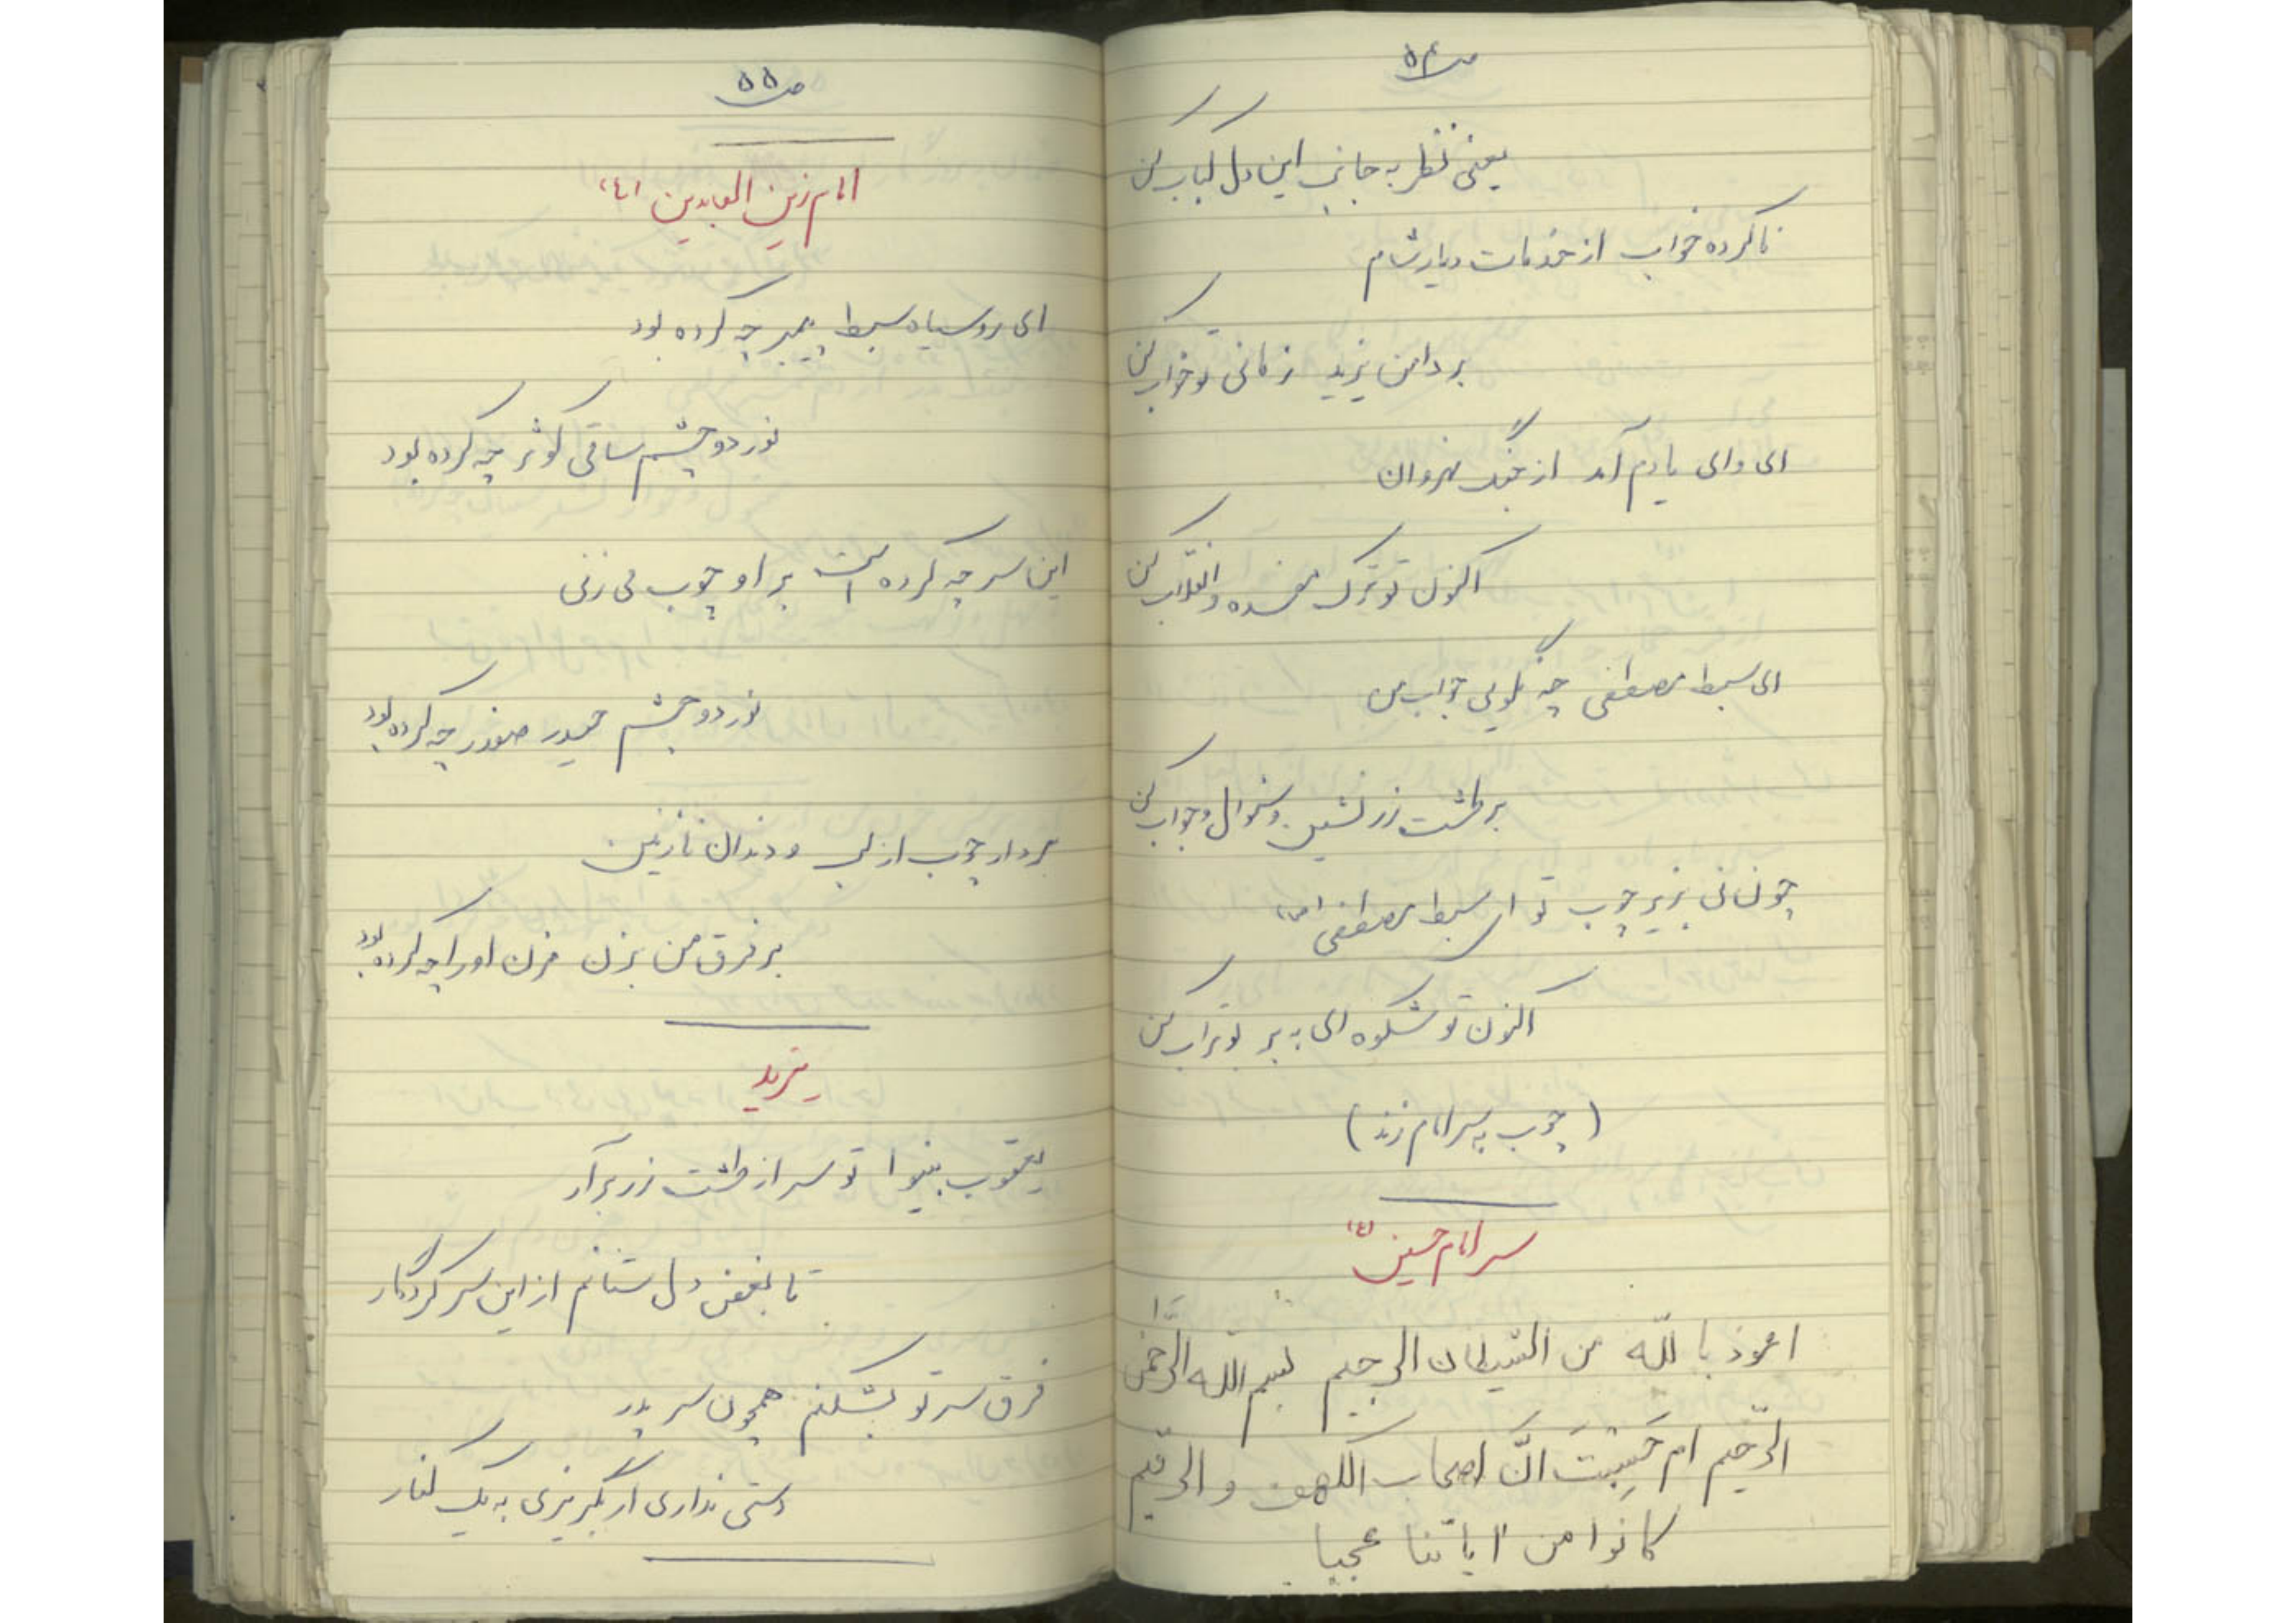 ص ۵۴
یعنی نظر به جانب این دل کباب کن
ناکرده خواب از خدمات دیار شام
بر دامن یزید زمانی تو خواب کن
ای وای یادم آمد از جنگ نهروان
اکنون تو ترک مفسده و انقلاب کن
ای سبط مصطفی چه نگویی جواب من
بر طشت زر نشین و سئوال و جواب کن
چونانی بزیر چوب تو ای سبط مصطفی (ص)
اکنون تو شکوه ای به بر بوتراب کن
(چوب به سر امام زند)
سر امام حسین (ع)
اعوذ بالله من الشیطان الرجیم بسم الله الرَّحمن
الرّحیم ام حَسِبْتَ انَّ اصحاب الکهف و الرقیم
کانوا من ایاتنا عجبا
ص ۵۵
امام زین العابدین (ع)
ای رو سیاه سبط پیمبر چه کرده بود
نور دو چشم ساقی کوثر چه کرده بود
این سر چه کرده است بر او چوب می زنی
نور دو چشم حیدر صفدر چه کرده بود
بردار چوب از لب و دندان نازنین
بر فرق من بزن مزن او را چه کرده بود
یزید
یعقوب بینوا تو سر از طشت زر برآر
تا بغض دل ستانم از این سر کردگار
فرق سر تو بشکنم همچون سر پدر
دستی نداری ار بگریزی به یک کنار